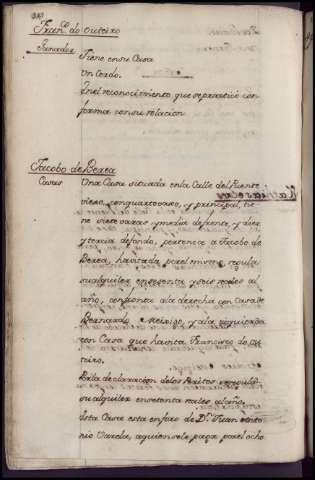 Franco. do outeiro
Ganados
Tiene en su Casa
Un Cerdo.
En el reconocimiento que se practicó con
forma con su relacion
Jacobo de Perea
Casas
Una Casa situada en la Calle del Puente
viejo, con quarto vaxo, y principal, tie
ne siete varas y media de frente, y diez
y tercia de fondo, pertenece a Jacobo de
Perea, havitada por el mismo, regula
su alquiler en sesenta y seis reales al
año, confronta a la derecha con Casa de
Bernardo, y a la izquierda
con Casa que havita Francisco do Ou
teiro.
Por la declaracion de los Peritos regulan
su alquiler en setenta reales al año.
Esta Casa esta en foro de Dn. Juan Anto
nio Varela, a quien se le paga por el ocho